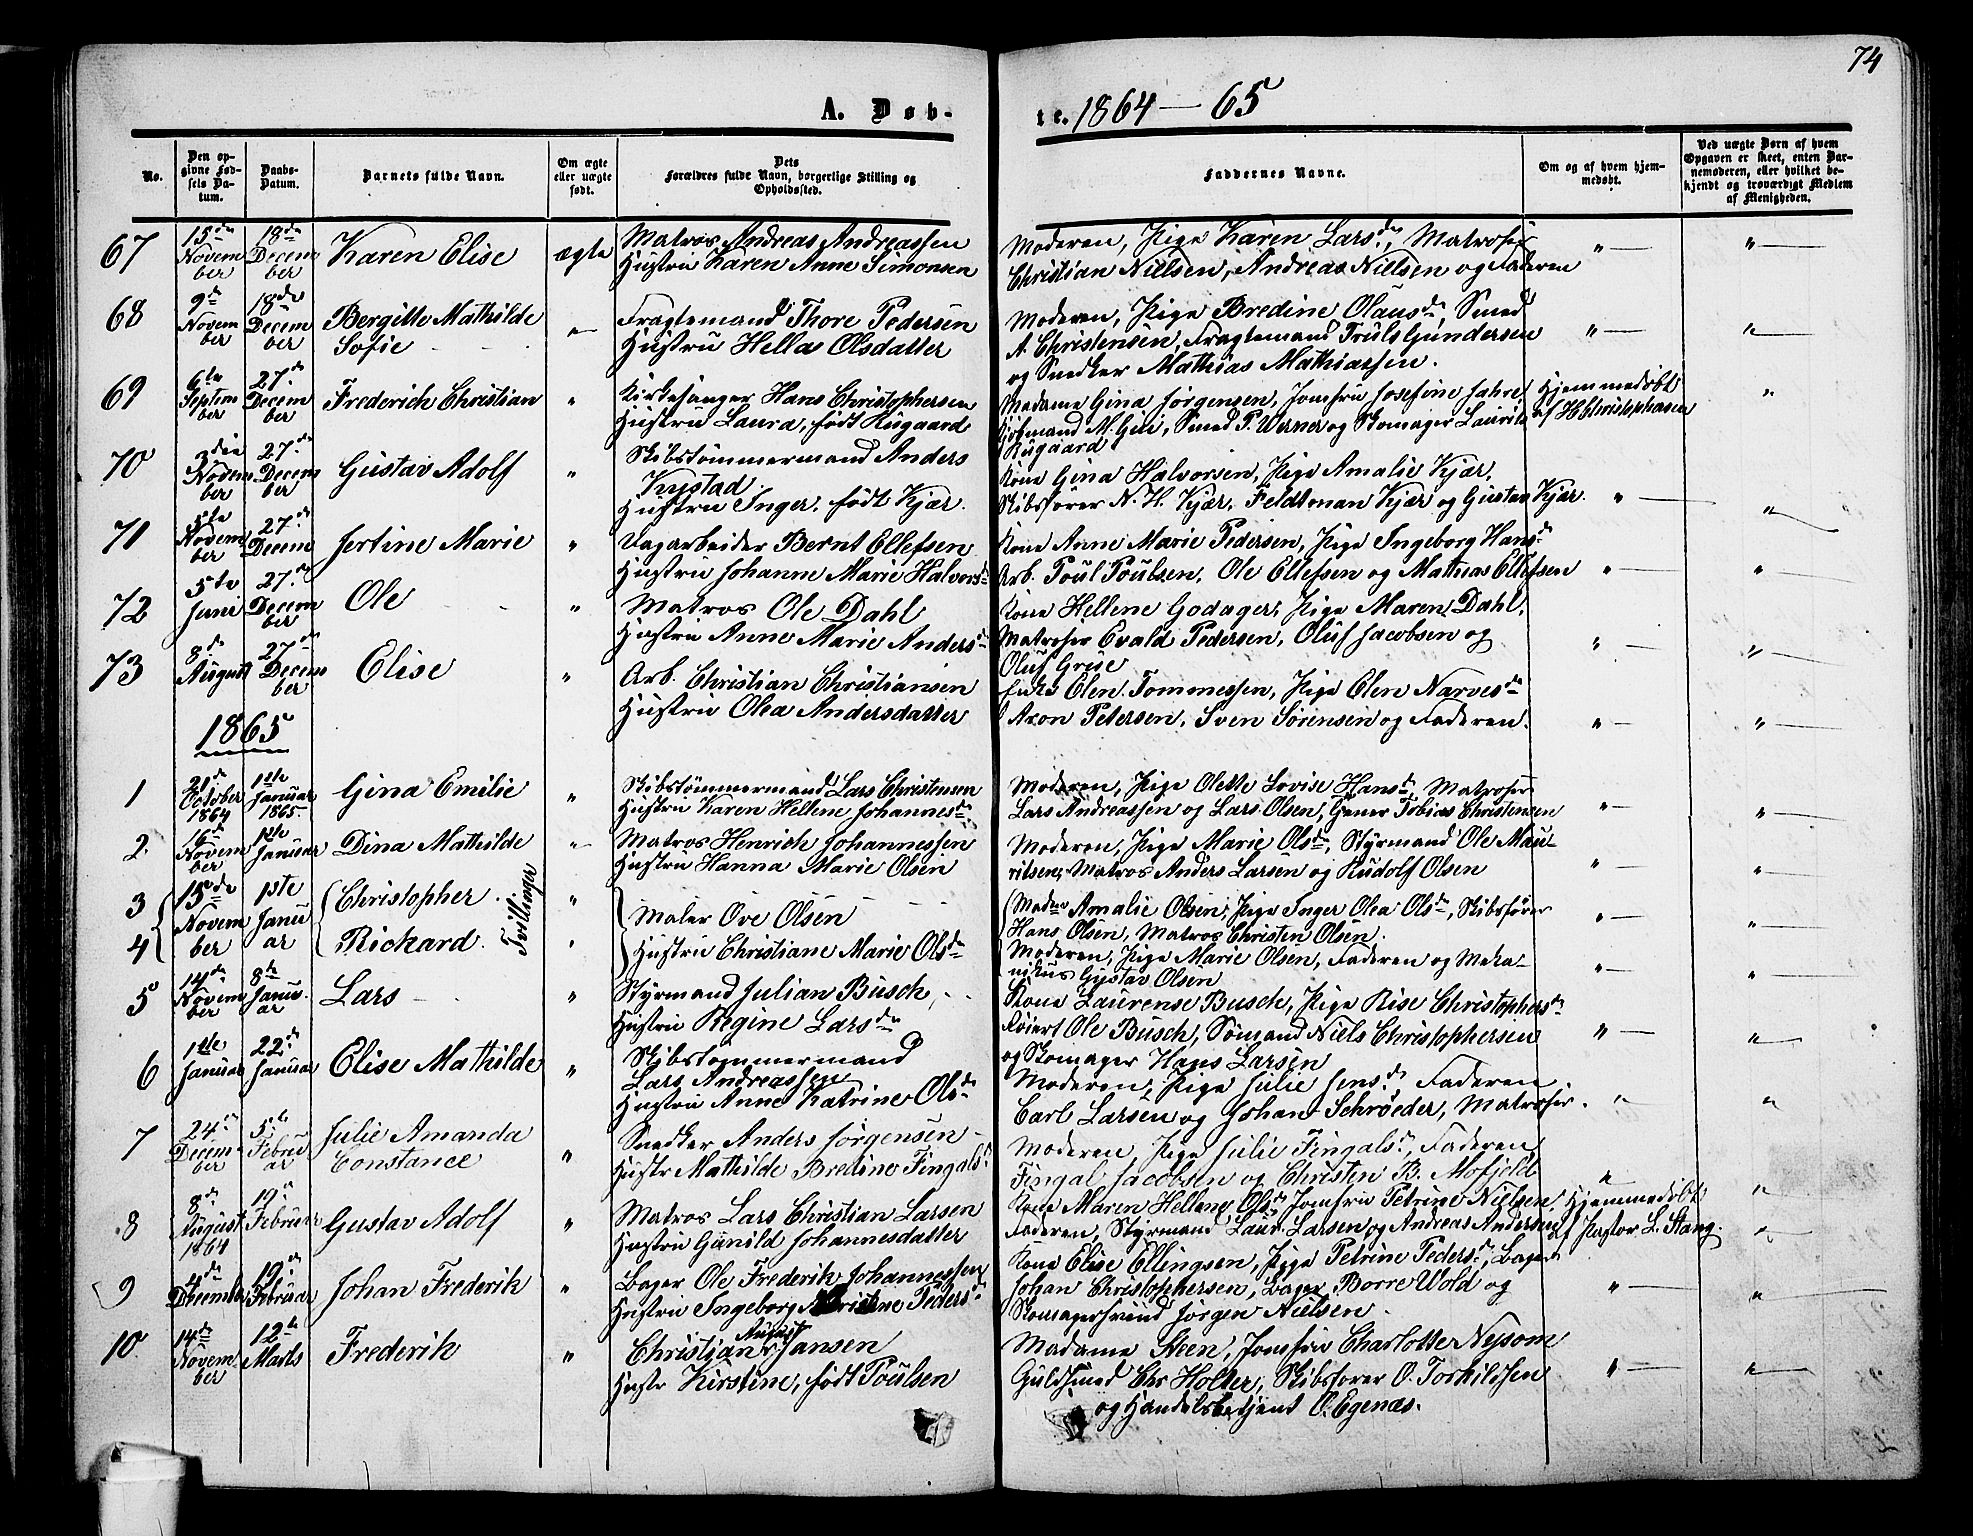 74
A. Døb-
te. 1864 — 65
No.
Den op-
givne Fød-
sels Da-
tum.
Daabs-
Datum.
Barnets fulde Navn.
Om ægte
eller uægte
født.
Dets
Forældres fulde Navn, borgerlige Stilling og
Opholdssted.
Faddernes Navne.
Om og af hvem hjem-
medøbt.
Ved uægte Børn af hvem
Opgaven er skeet, enten Bar-
nemoderen, eller hvilket be-
kjendt og troværdigt Medlem
af Menigheden.
67
15de
Novem
ber
18de
Decem
ber
Karen Elise
ægte
Matros Andreas Andreassen
Hustru Karen Anne Simonsen
Moderen, Pige Karen Larsdn, Matroser
Christian Nielsen, Andreas Nielsen og Faderen
" —
" —
68
9de
Novem
ber
18de
Decem
ber
Bergitte Mathilde
Sofie
" —
Fragtemand Thore Pedersen
Hustru Hella Olsdatter
Moderen, Pige Bredine Olausdn, Smed
A Christensen, Fragtemand Truls Gundersen
og Snedker Mathias Mathiassen.
" —
" —
69
6te
Septem
ber
27de
Decem
ber
Frederich Christian
"
Kirkesanger Hans Christophersen
Hustru Laura, født Rugaard
Madame Gina Jørgensen, Jomfru Josefine Jahre,
Kjøbmand M. Gui, Smed P. Werner og Skomager Laurits
Rugaard
Hjemmedøbt
af H Christophersen
"
70
3die
Novem
ber
27de
Decem
ber
Gustav Adolf
"
Skibstømmermand Anders
Krystad.
Hustru Inger, født Kjær.
Kone Gina Halvorsen, Pige Amalie Kjær,
Skibsfører N. H. Kjær, Feldtman Kjær og Gustav Kjær.
" —
" —
71
5te
Novem
ber
27de
Decem
Jertine Marie
"
Dagarbeider Bernt Ellefsen
Hustru Johanne Marie Halvorsdn
Kone Anne Marie Pedersen, Pige Ingeborg Hansdn
Arb. Poul Poulsen, Ole Ellefsen og Mathias Ellefsen
" —
" —
72
5te
Juni
27de
Decem
ber
Ole
"
Matros Ole Dahl
Hustru Anne Marie Andersdn
Kone Hellene Godager, Pige Maren Dahl,
Matroser Evald Pedersen, Oluf Jacobsen og
Oluf Grise
" —
" —
73
8de
August
27de
Decem
ber
Elise
"
Arb. Christian Christiansen
Hustru Olea Andersdatter
Enke Elen Tommessen, Pige Elen Narvesdn
Axon Petersen, Sven Sørensen og Faderen.
" —
" —
1865
1
21de
October
1864
1ste
Januar
1865.
Gina Emilie
"
Skibstømmermand Lars Christensen
Hustru Karen Hellene Johannesdn
Moderen, Pige Olette Lovise Hansdn, Matroser
Lars Andreassen og Lars Olsen, Gamer Tobias Christensen
" —
" —
2.
16de
Novem
ber
1ste
Januar
Dina Mathilde
" —
Matros Henrich Johannessen
Hustru Hanna Marie Olsen
Moderen, Pige Marie Olsdn, Styrmand Ole Mau-
ritsen, Matros Anders Larsen og Rudolf Olsen
" —
" —
3
4
15de
Novem
ber
1ste
Janu
ar
Christopher.
Richard.
Tvillinger
"
"
Maler Ove Olsen
Hustru Christiane Marie Olsdn
Madme Amalie Olsen, Pige Inger Olea Olsdn, Skibsfører
Hans Olsen, Matros Christen Olsen.
Moderen, Pige Marie Olsen, Faderen og Meka-
nikus Gustav Olsen
" —
" —
" —
" —
5
14de
Novem
ber
8de
Janu.
ar
Lars
"
Styrmand Julian Busch,
Hustru Regine Larsdn
Kone Laurense Busch, Pige Rise Christophersdn
Føiert Ole Busch, Sømand Niels Christophersen
og Skomager Hans Larsen
" —
" —
6
1ste
Januar
22de
Januar
Elise Mathilde
"
Skibstømmermand
Lars Andreassen
Hustru Anne Katrine Olsdn
Moderen, Pige Julie Jensdn, Faderen,
Carl Larsen og Johan Schrøeder, Matroser.
"
"
7
24de
Decem
ber
5te
Febru
ar
Julie Amanda
Constance
"
Snedker Anders Jørgensen
Hustr Mathilde Bredine Fingalsdn
Moderen, Pige Julie Fingalsdn, Faderen,
Fingal Jacobsen og Christen B. Mofjeld
"
"
8
8de
August
1864
19de
Februar
Gustav Adolf
"
Matros Lars Christian Larsen
Hustru Gunild Johannesdatter
Kone Maren Hellene Olsdn, Jomfru Petrine Nielsen,
Faderen, Styrmand Laur. Larsen og Andreas Andersen
Hjemmedøbt
af Pastor L. Stang.
"
9
4de
December
19de
Februar
Johan Frederik
"
Bager Ole Frederik Johannessen
Hustru Ingeborg Kristine Pedersdn
Kone Elise Ellingsen, Pige Petrine Pedersdn, Bager
Johan Christophersen, Bager Borre Wold og
Skomagersvend Jørgen Nielsen.
" —
" —
10.
14de
Novem
ber
12te
Marts
Frederik
"
Christian August Jansen
Hustr Kirstine, født Poulsen
Madame Steen, Jomfru Charlotte Nysom
Guldsmed Chr Holter, Skibsfører O. Torkildsen
og Handelsbetjent O. Egenæs.
" —
" —